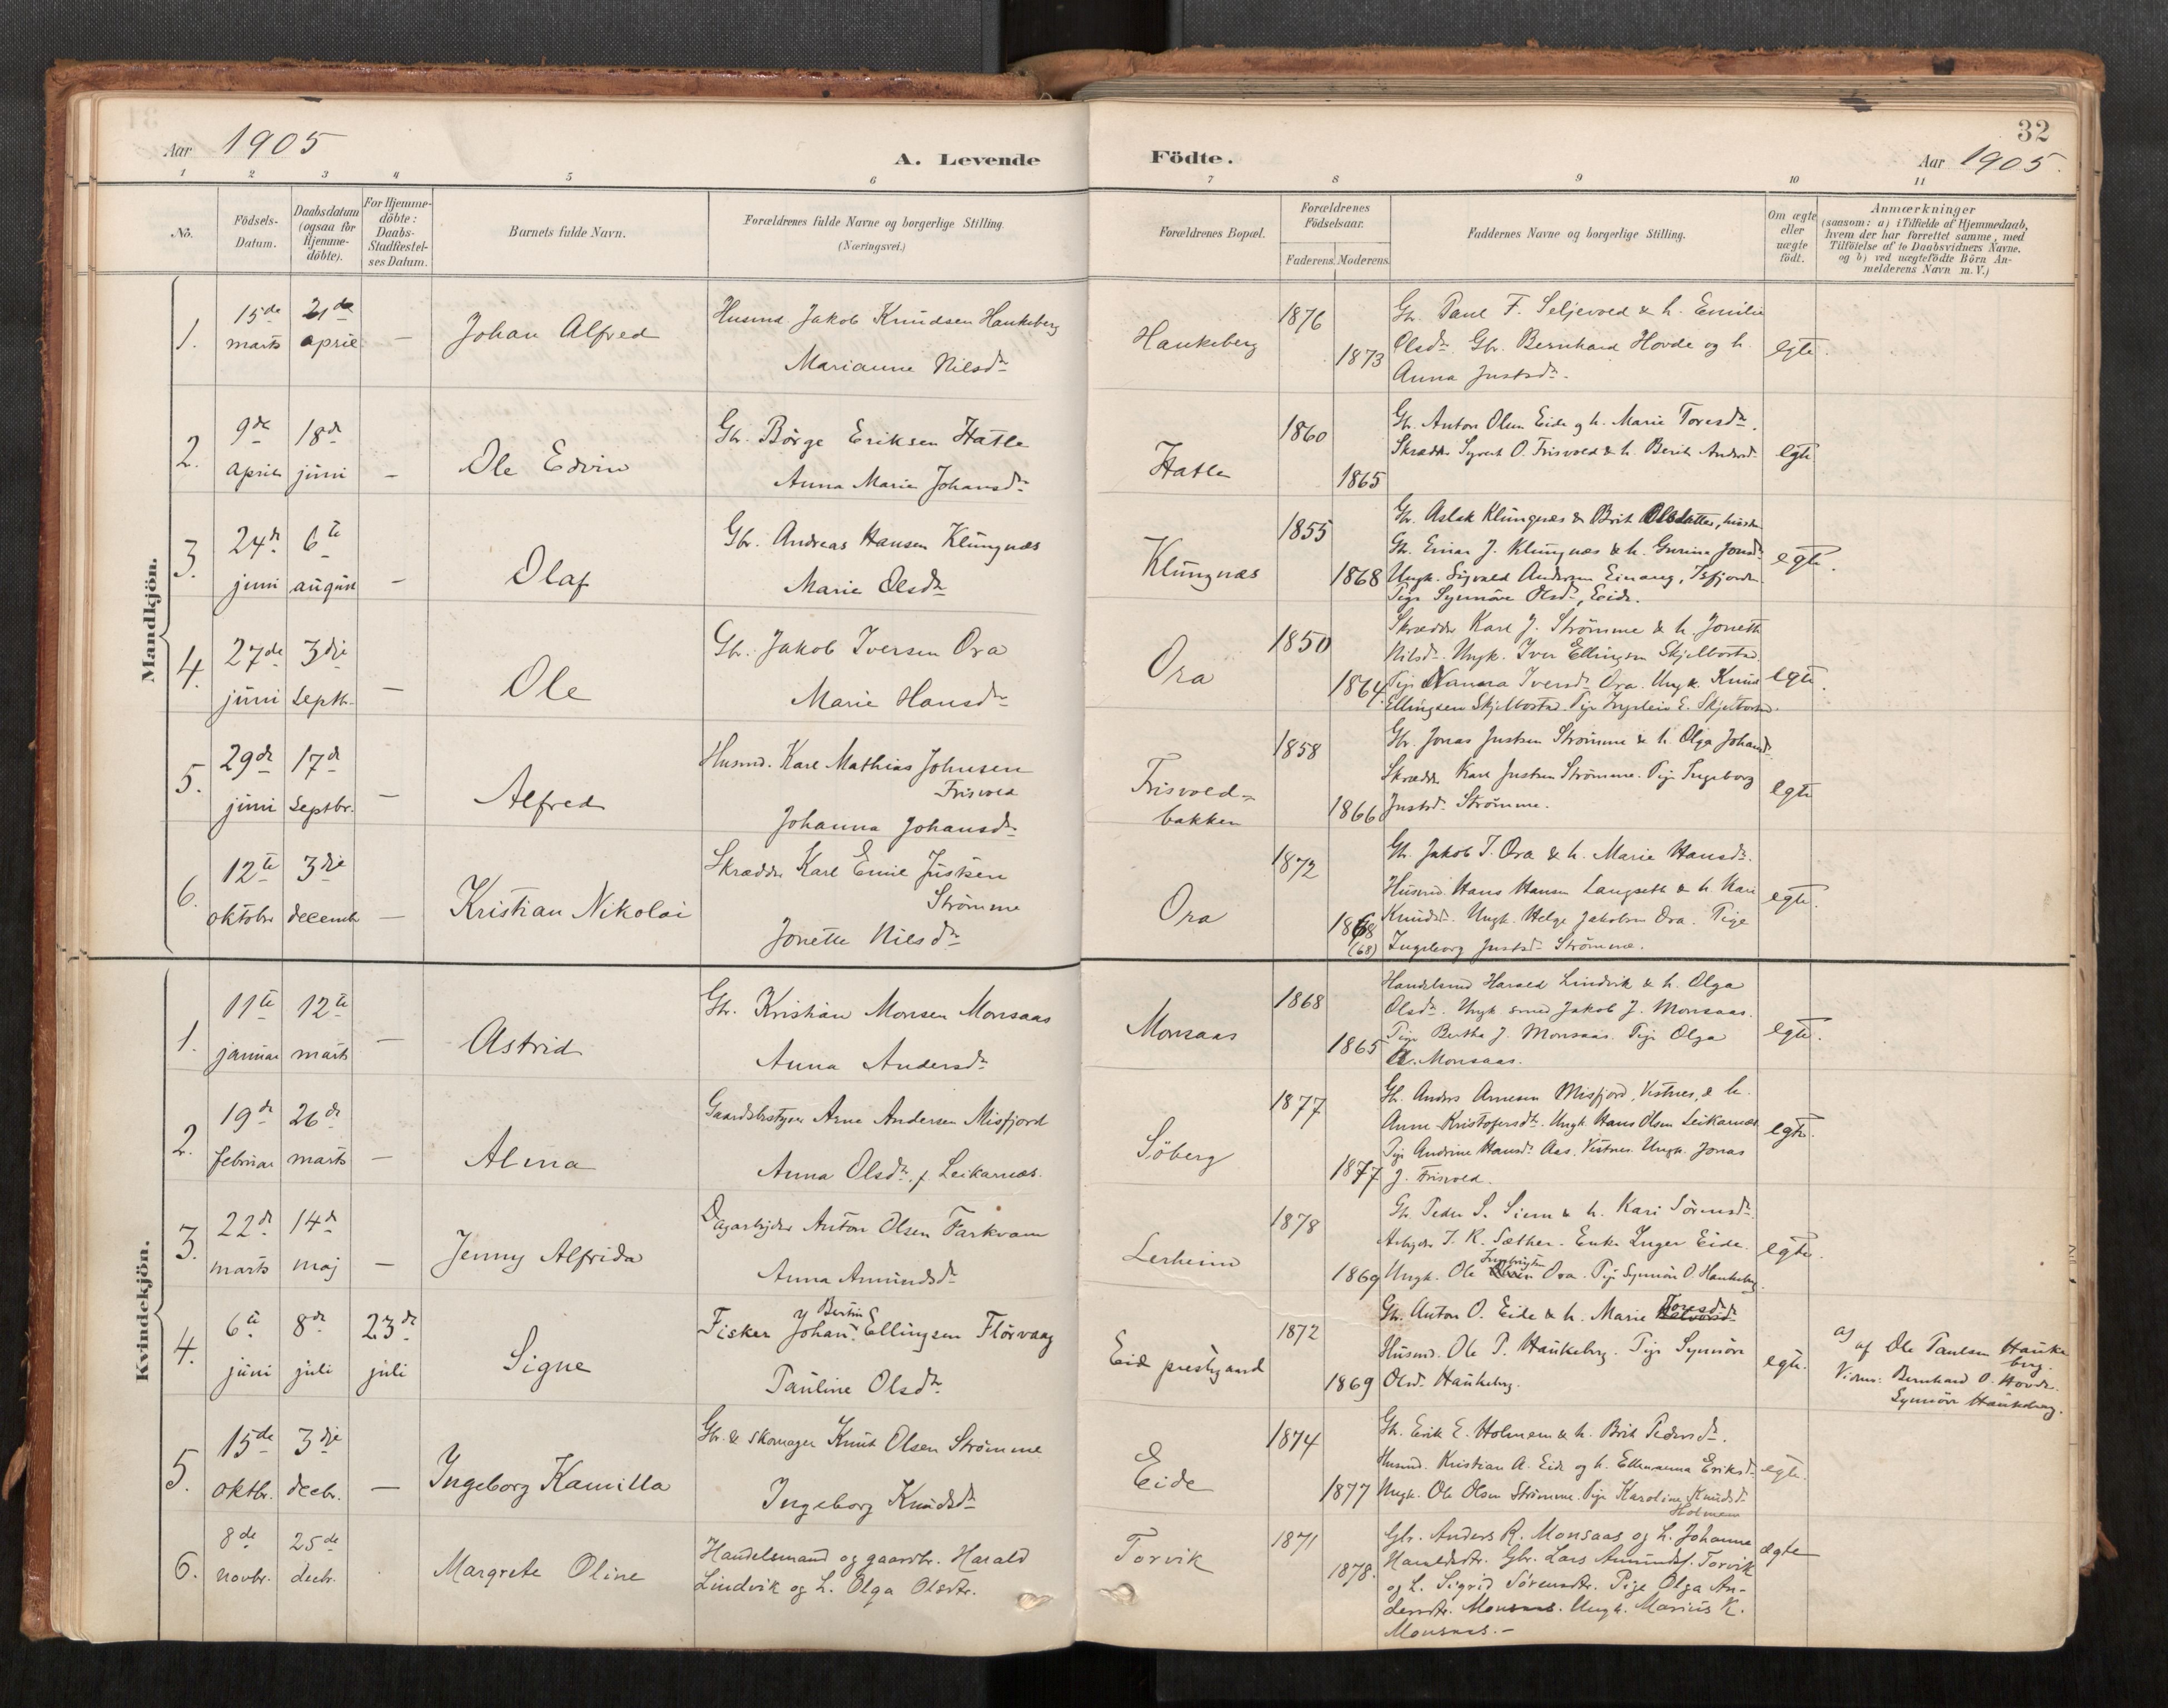 32
Aar 1905
A. Levende Födte.
Aar 1905.
1 2 3 4 5 6 7 8 9 10 11
No.
Födsels-Datum.
Daabsdatum (ogsaa for Hjemme-döbte).
For Hjemme-döbte: Daabs-Stadfæstel-ses Datum.
Barnets fulde Navn.
Forældrenes fulde Navne og borgerlige Stilling.
(Næringsvei.)
Forældrenes Bopæl.
Forældrenes Födselsaar.
Faderens. Moderens.
Faddernes Navne og borgerlige Stilling.
Om ægte eller uægte födt.
Anmærkninger
(saasom: a) i Tilfælde af Hjemmedaab,
hvem der har forrettet samme, med
Tilföielse af to Daabsvidners Navne,
og b) ved uægtefödte Börn An-
melderens Navn m. V.)
Mandkjön.
1. 15de marts 21de april — Johan Alfred
Husmd. Jakob Knudsen Haukeberg
Marianne Nilsdr.
Haukeberg 1876 1873
Gbr. Paul F. Seljevold & h. Emilie
Olsdr. Gbr. Bernhard Hovde og h.
Anna Justsdr.
egte.
2. 9de april 18de juni — Ole Edvin
Gbr. Börge Eriksen Hatle
Anna Marie Johansdr.
Hatle 1860 1865
Gbr. Anton Olsen Eide og h. Marie Toresdr.
Skrædder Syvert O. Frisvold & h. Berit Andersd.
egte
3. 24de juni 6te august — Olaf
Gbr. Andreas Hansen Klungnæs
Marie Olsdr.
Klungnæs 1855 1868
Gbr. Aslak Klungnæs & Brit Olsdatter, hustru
Gbr. Einar J. Klungnæs & h. Gurina Jonsdr.
Ungk. Sigvald Andersen Einang, Isfjorden.
Pige Synnöve Olsdr., Eide.
egte.
4. 27de juni 3dje septbr. — Ole
Gbr. Jakob Iversen Ora
Marie Hansdr.
Ora 1850 1864
Skrædder Karl J. Strömme & h. Jonetta
Nilsdr. Ungk. Iver Ellingsen Skjelbostad.
Pige Nanna Iversdr. Ora. Ungk. Knud
Ellingsen Skjelbostad. Pige E. Skjelbostad.
egte.
5. 29de juni 17de septbr. — Alfred
Husmd. Karl Mathias Johnsen
Frisvold
Johanna Johansdr.
Frisvold-
bakken
1858 1866
Gbr. Jonas Justsen Strömme & h. Olga Johansdr.
Skrædder Karl Justsen Strömme. Pige Ingeborg
Justsdr. Strömme.
egte
6. 12te oktober 3dje decembr — Kristian Nikolai
Skrædder Karl Emil Justsen
Strömme
Jonette Nilsdr.
Ora 1872 1868 (68)
Gbr. Jakob I. Ora & h. Marie Hansdr.
Husmd. Hans Hansen Langseth & h. Kari
Knudsdr. Ungk. Helge Jakobsen Ora. Pige
Ingeborg Justsdr. Strömme.
egte.
Kvindekjön.
1. 11te januar 12te marts — Astrid
Gbr. Kristian Monsen Monsaas
Anna Andersdr.
Monsaas 1868 1865
Handelsmd Harald Lindvik & h. Olga
Olsdr. Ungk. smed Jakob J. Monsaas.
Pige Bertha J. Monsaas. Pige Olga
A. Monsaas.
egte.
2. 19de februar 26de marts — Alma
Gaardsbestyrer Arne Andersen Misfjord
Anna Olsdr. f. Leikarnæs.
Söberg 1877 1877
Gbr. Anders Arnesen Misfjord, Vestnes, & h.
Anne Kristofersdr. Ungk. Hans Olsen Leikarnæs.
Pige Andrine Hansdr. Aas, Vestnes. Ungk. Jonas
J. Frisvold.
egte.
3. 22de marts 14de maj — Jenny Alfrida
Dagarbejder Anton Olsen Farkvam
Anna Amundsdr.
Lerheim 1878 1869
Gbr. Peder S. Siem & h. Kari Sörensdr.
Arbejder I. R. Sæther. Enke Inger Eide.
Ungk. Ole Ingbrigtsen Ora. Pige Synnöve O. Haukeberg.
egte.
4. 6te juni 8de juli 23de juli Signe
Fisker Johan Bertin Ellingsen Flörvaag
Pauline Olsdr.
Eid prestgaard 1872 1869
Gbr. Anton O. Eide & h. Marie Toresdr.
Husmd. Ole P. Haukeberg. Pige Synnöve
Olsdr. Haukeberg.
egte.
a) af Ole Paulsen Hauke-
berg.
Vidner: Bernhard O. Hovde.
Synnöve Haukeberg.
5. 15de oktbr. 3dje decbr. — Ingeborg Kamilla
Gbr. & skomager Knut Olsen Strömme
Ingeborg Knudsdr.
Eide 1874 1877
Gbr. Erik E. Holmem & h. Brit Pedersdr.
Husmd. Kristian A. Eide og h. Ellenanna Eriksdr.
Ungk. Ole Olsen Strömme. Pige Karoline Knudsdr.
Holmem
egte.
6. 8de novbr. 25de decbr. Margrete Oline
Handelsmand og gaardbr. Harald
Lindvik og h. Olga Olsdtr.
Torvik 1871 1878.
Gbr. Anders R. Monsaas og h. Johanne
Haraldsdtr. Gbr. Lars Amundsf. Torvik
og h. Sigrid Sörensdtr. Pige Olga An-
dersdtr. Monsaas. Ungk. Marius K.
Monsaas. —
ægte